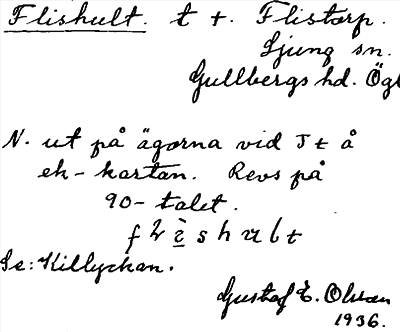 Flishult. t t. Flistorp.
Ljung sn.
Gullbergs hd. Ögl
N. ut på ägorna vid Jt å
ek-kartan. Revs på
90-talet.
Se: Killyckan.
Gustaf E. Olsson
1936.